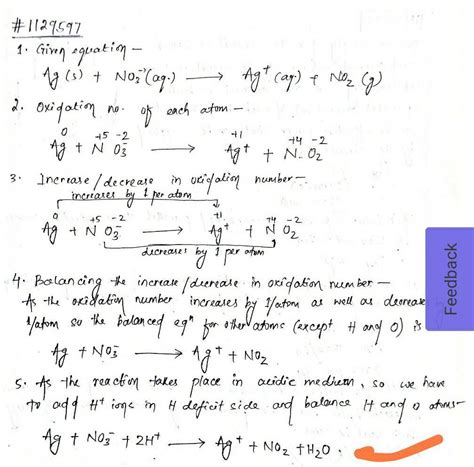 #1129597
1. Given equation -
Ag (s) + NO₃⁻ (aq.) ⟶ Ag⁺ (aq.) + NO₂ (g)
2. Oxidation no. of each atom -
0 +5 -2 +1 +4 -2
Ag + N O₃⁻ ⟶ Ag⁺ + N O₂
3. Increase / decrease in oxidation number -
increases by 1 per atom
0 +5 -2 +1 +4 -2
Ag + N O₃⁻ ⟶ Ag⁺ + N O₂
decreases by 1 per atom
4. Balancing the increase / decrease in oxidation number -
As the oxidation number increases by 1/atom as well as decrease
1/atom so the balanced eqⁿ for other atoms (except H and O) is
Ag + NO₃⁻ ⟶ Ag⁺ + NO₂
5. As the reaction takes place in acidic medium, so we have
to add H⁺ ions in H deficit side and balance H and O atoms-
Ag + NO₃⁻ + 2H⁺ ⟶ Ag⁺ + NO₂ + H₂O.
Feedback